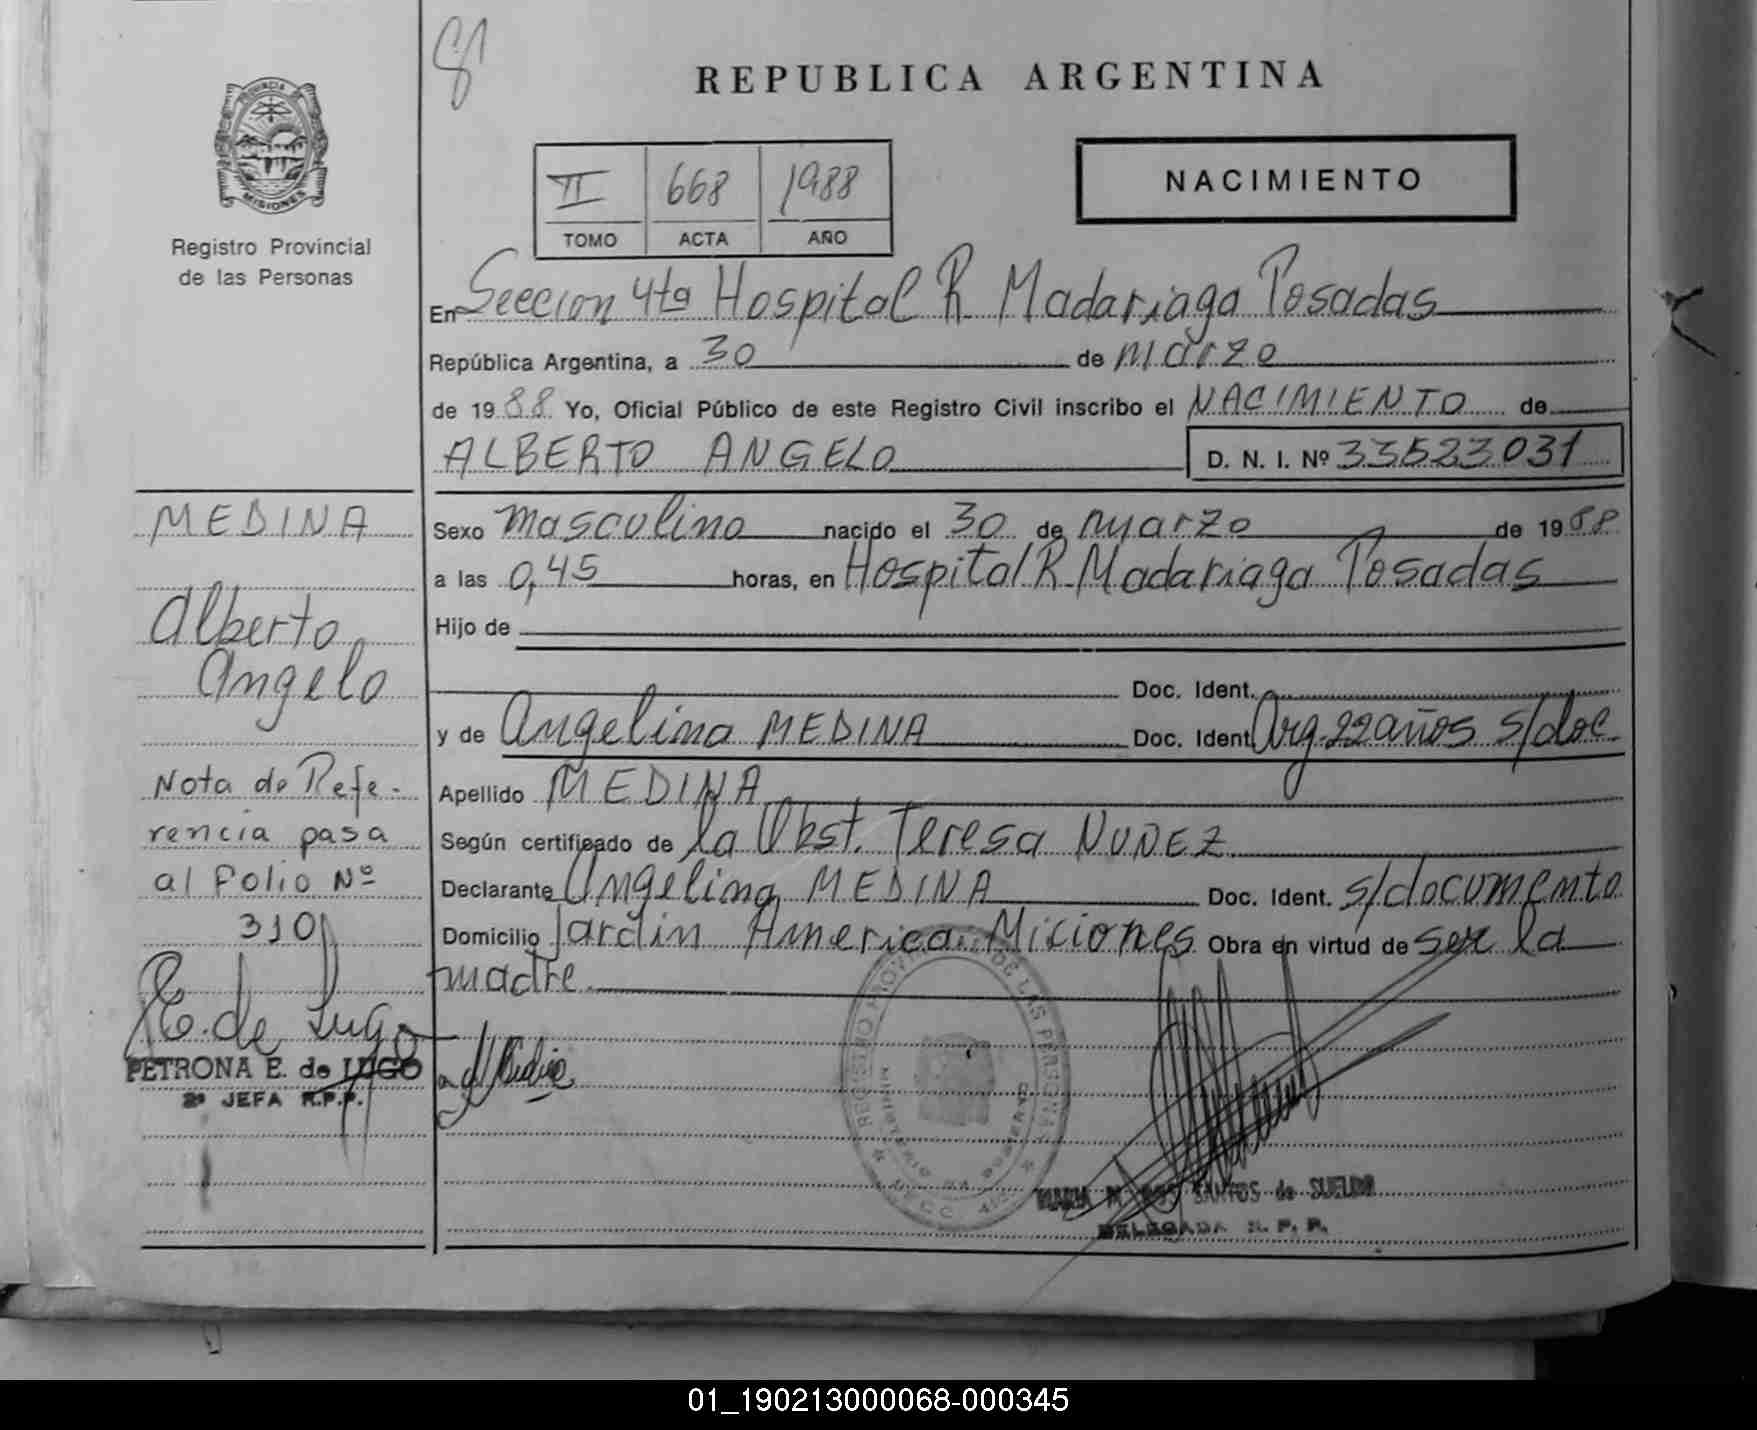 81
REPUBLICA ARGENTINA
PROVINCIA DE
MISIONES
Registro Provincial
de las Personas
II 668 1988
TOMO ACTA AÑO
NACIMIENTO
En Seccion 4ta Hospital R Madariaga Posadas
República Argentina, a 30 de marzo
de 1988 Yo, Oficial Público de este Registro Civil inscribo el NACIMIENTO de
ALBERTO ANGELO D. N. I. Nº 33523031
Sexo masculino nacido el 30 de marzo de 1988
a las 0,45 horas, en Hospital R Madariaga Posadas
Hijo de
Doc. Ident.
y de Angelina MEDINA Doc. Ident Arg. 22 años s/doc.
Apellido MEDINA
Según certificado de la Obst. Teresa NUÑEZ
Declarante Angelina MEDINA Doc. Ident. s/documento
Domicilio Jardin America Miciones Obra en virtud de ser la
madre.
MEDINA
Alberto
Angelo
Nota de Refe-
rencia pasa
al Folio Nº
310
E. de Lugo
PETRONA E. de LUGO
2ª JEFA R.P.P.
REGISTRO PROVINCIAL DE LAS PERSONAS
MINISTERIO DE GOBIERNO
MARIA M. DOS SANTOS de SUELDO
DELEGADA R. P. P.
01_190213000068-000345